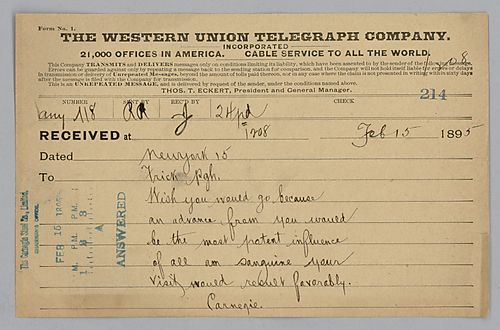 Form No. 1.
THE WESTERN UNION TELEGRAPH COMPANY.
INCORPORATED
21,000 OFFICES IN AMERICA. CABLE SERVICE TO ALL THE WORLD.
This Company TRANSMITS and DELIVERS messages only on conditions limiting its liability, which have been assented to by the sender of the following message.
Errors can be guarded against only by repeating a message back to the sending station for comparison, and the Company will not hold itself liable for errors or delays
in transmission or delivery of Unrepeated Messages, beyond the amount of tolls paid thereon, nor in any case where the claim is not presented in writing within sixty days
after the message is filed with the Company for transmission.
This is an UNREPEATED MESSAGE, and is delivered by request of the sender, under the conditions named above.
THOS. T. ECKERT, President and General Manager.
214
NUMBER SENT BY REC'D BY CHECK
any 118 24 pd
RECEIVED at 1208 Feb 15 1895
Dated Newyork 15
To Frick Pgh.
Wish you would go because
an advance from you would
be the most potent influence
of all am sanguine your
visit would result favorably.
Carnegie.
The Carnegie Steel Co., Limited,
FEB 16 1895
ANSWERED